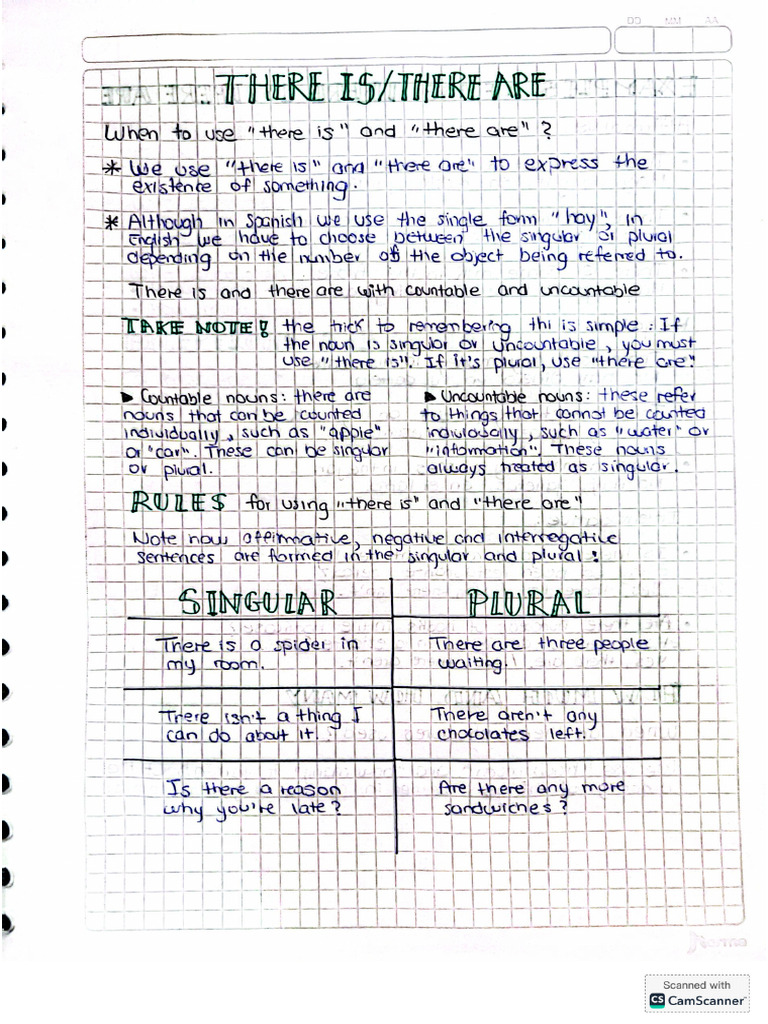 DD MM AA
THERE IS/THERE ARE
When to use "there is" and "there are"?
* We use "there is" and "there are" to express the
existence of something.
* Although in Spanish we use the single form "hay", in
English we have to choose between the singular or plural
depending on the number of the object being referred to.
There is and there are with countable and uncountable
TAKE NOTE! the trick to remembering thi is simple: If
the noun is singular or uncountable, you must
use "there is". If it's plural, use "there are".
▶ Countable nouns: there are
nouns that can be counted
individually, such as "apple"
or "car". These can be singular
or plural.
▶ Uncountable nouns: these refer
to things that cannot be counted
individually, such as "water" or
"information". These nouns
always treated as singular.
RULES for using "there is" and "there are"
Note now affirmative, negative and interregative
sentences are formed in the singular and plural:
SINGULAR PLURAL
There is a spider in
my room.
There are three people
waiting.
There isn't a thing I
can do about it.
There aren't any
chocolates left.
Is there a reason
why you're late?
Are there any more
sandwiches?
Norma
Scanned with
CS CamScanner